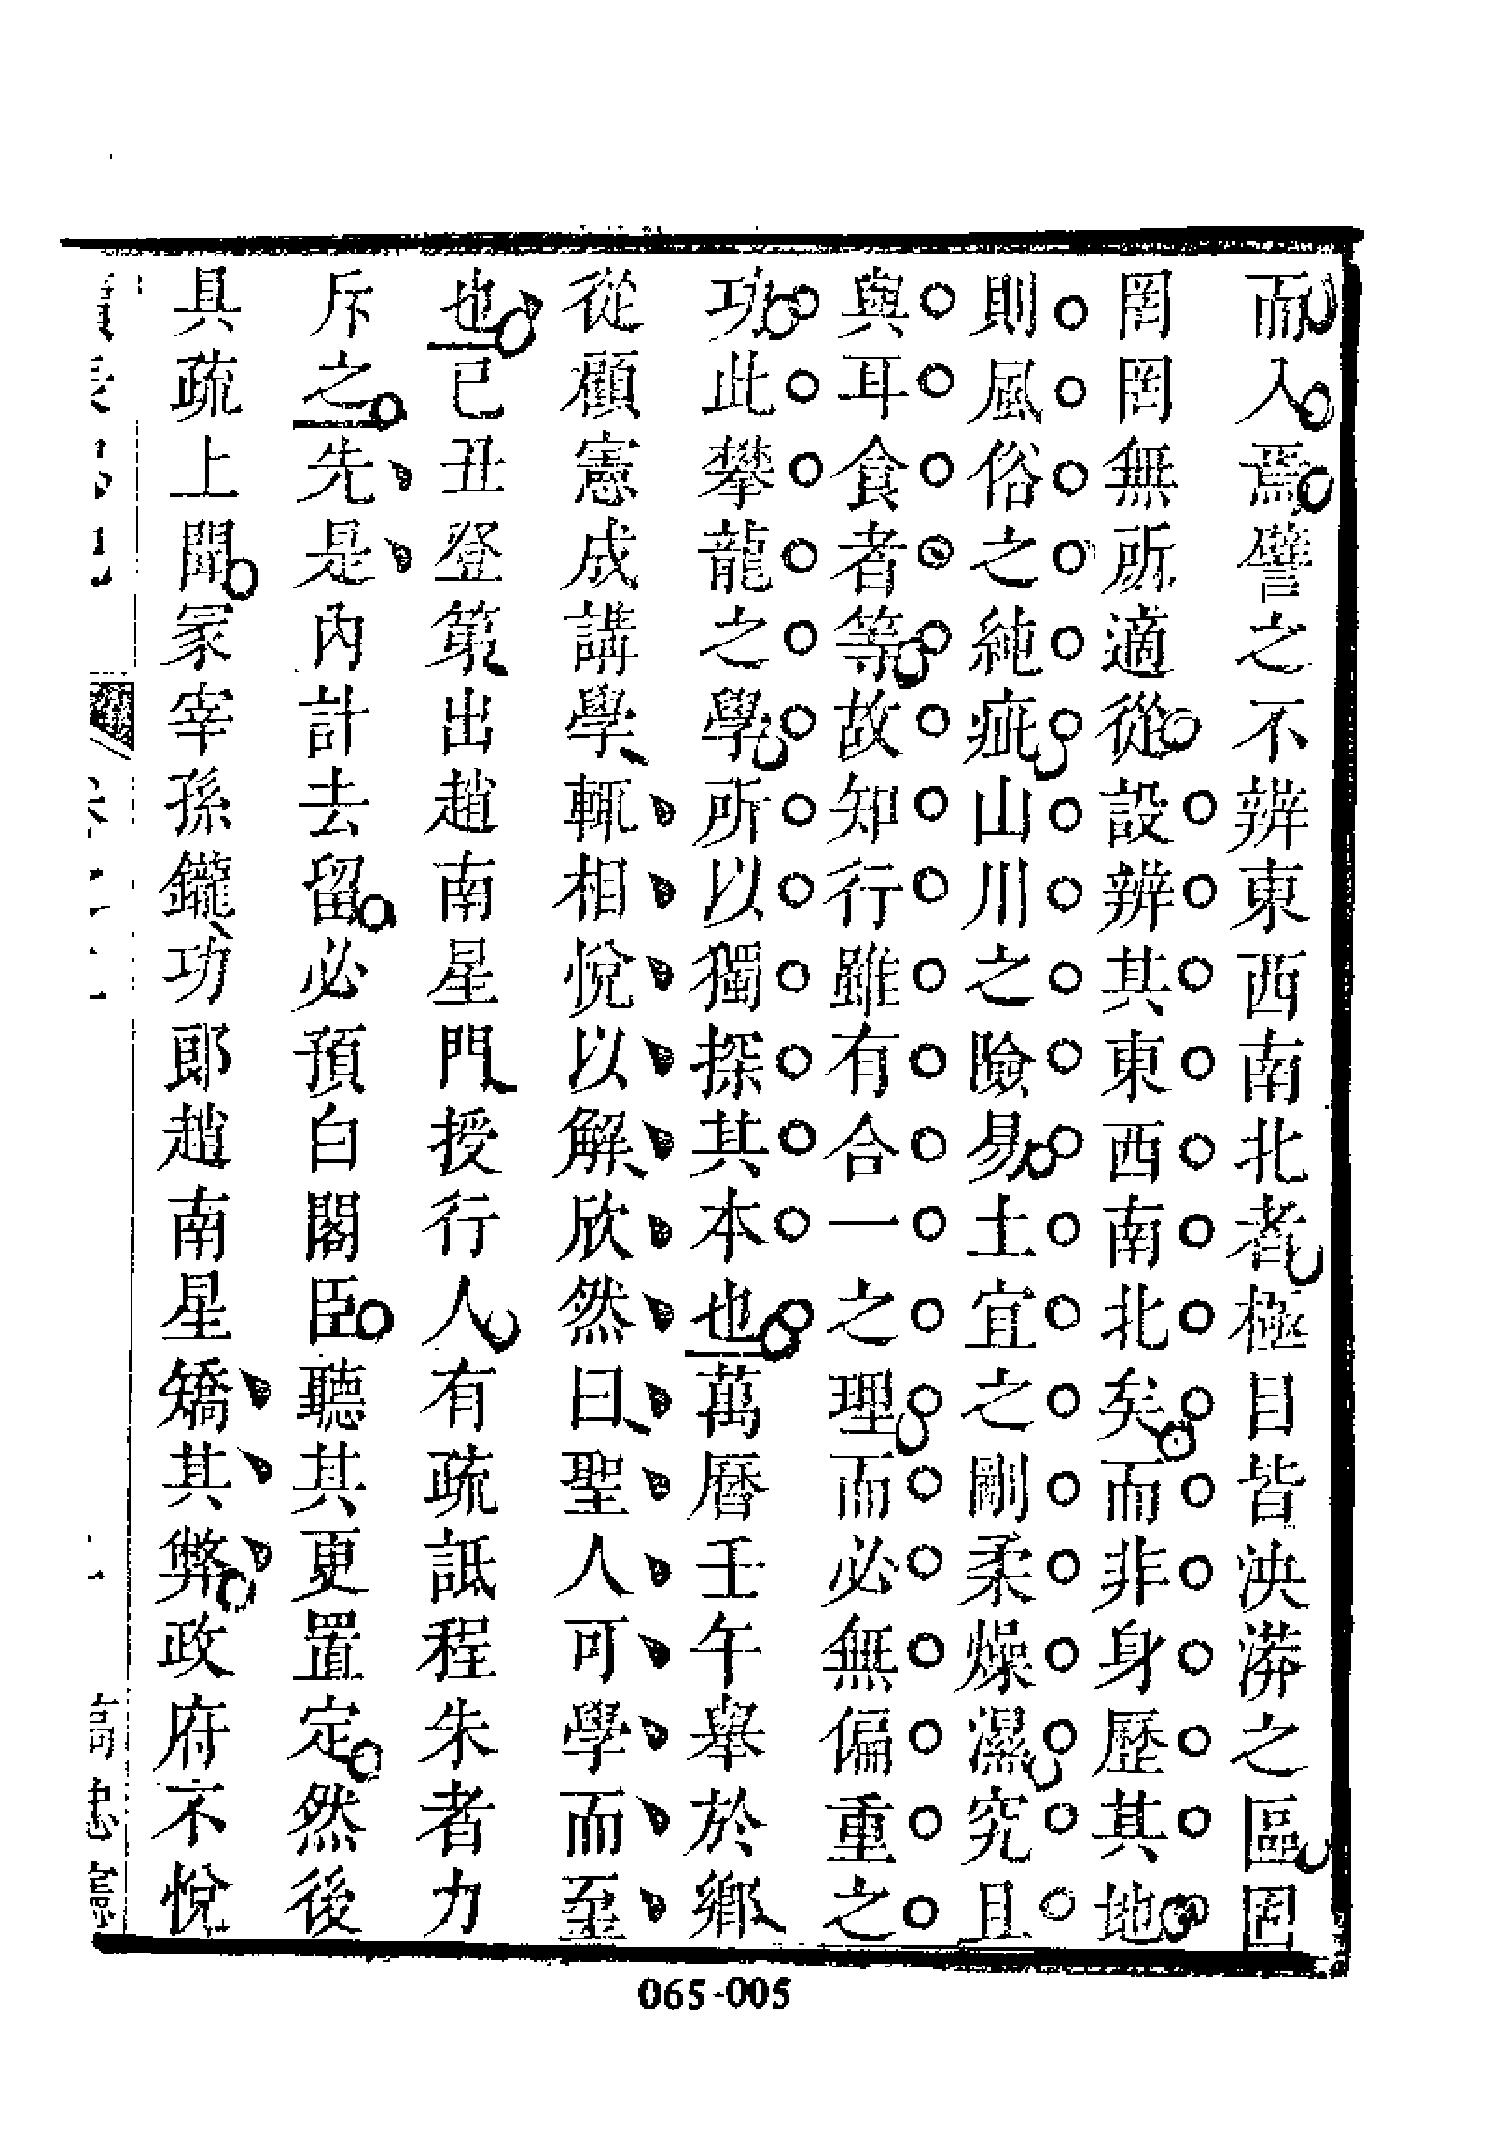 而入焉譬之不辨東西南北者極目皆泱漭之區罔
罔罔無所適從設辨其東西南北矣而非身歷其地
則風俗之純疵山川之險易土宜之剛柔燥濕究且
與耳食者等故知行雖有合一之理而必無偏重之
功此攀龍之學所以獨探其本也萬曆壬午舉於鄉
從顧憲成講學輒相悅以解欣然曰聖人可學而至
也已丑登第出趙南星門授行人有疏詆程朱者力
斥之先是內計去留必預白閣臣聽其更置定然後
具疏上聞冢宰孫鑨功郎趙南星矯其弊政府不悅
065-005